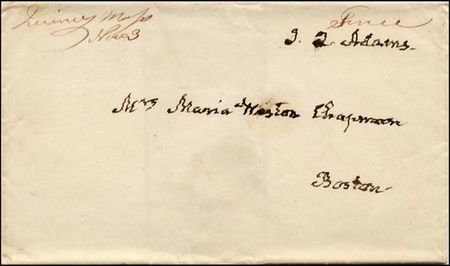 Quincy Mass
Nov 3
Free
J. Q. Adams.
Mrs Maria Weston Chapman
Boston